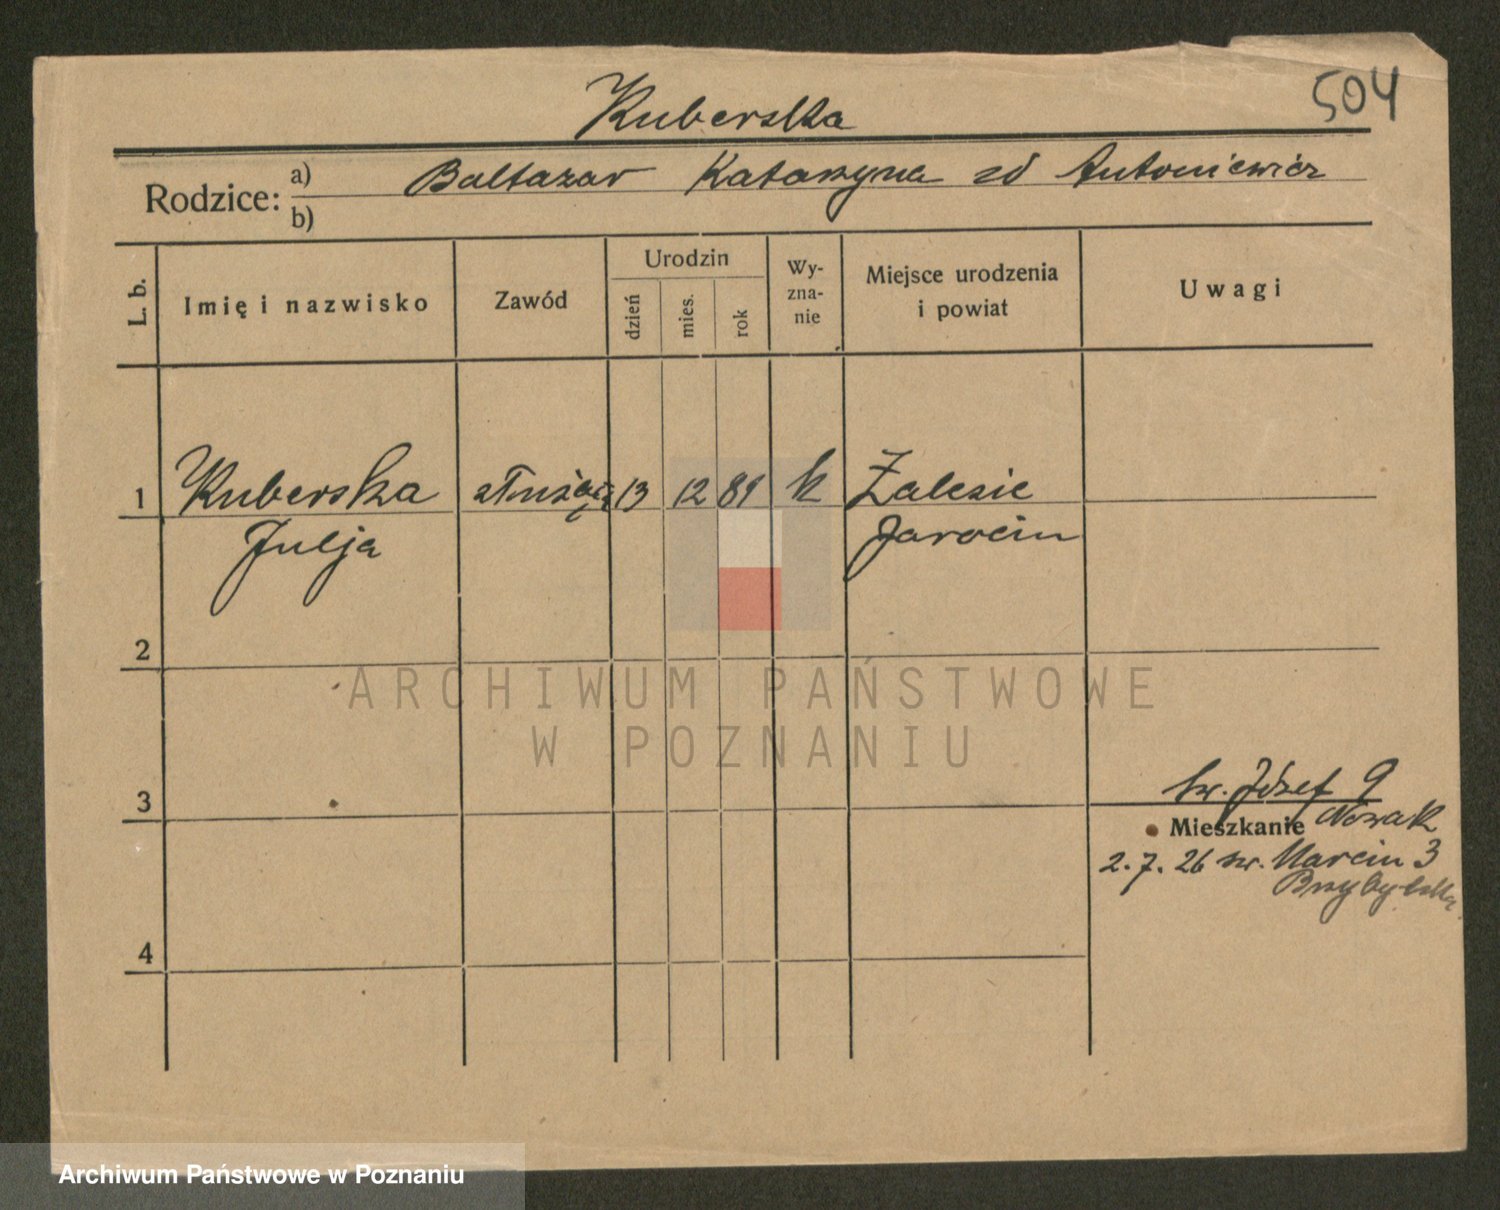 504
Kuberska
Rodzice: a) Baltazar Katarzyna zd Antoniewicz
b)
L. b.
Imię i nazwisko
Zawód
Urodzin
dzień
mies.
rok
Wy-
zna-
nie
Miejsce urodzenia
i powiat
Uwagi
1 Kuberska służąca 13 12 89 k Zalesie
Julja Jarocin
2
3
4
św. Józef 9
Mieszkanie Nowak
2.7.26 św. Marcin 3
Przybylska
ARCHIWUM PAŃSTWOWE
W POZNANIU
Archiwum Państwowe w Poznaniu